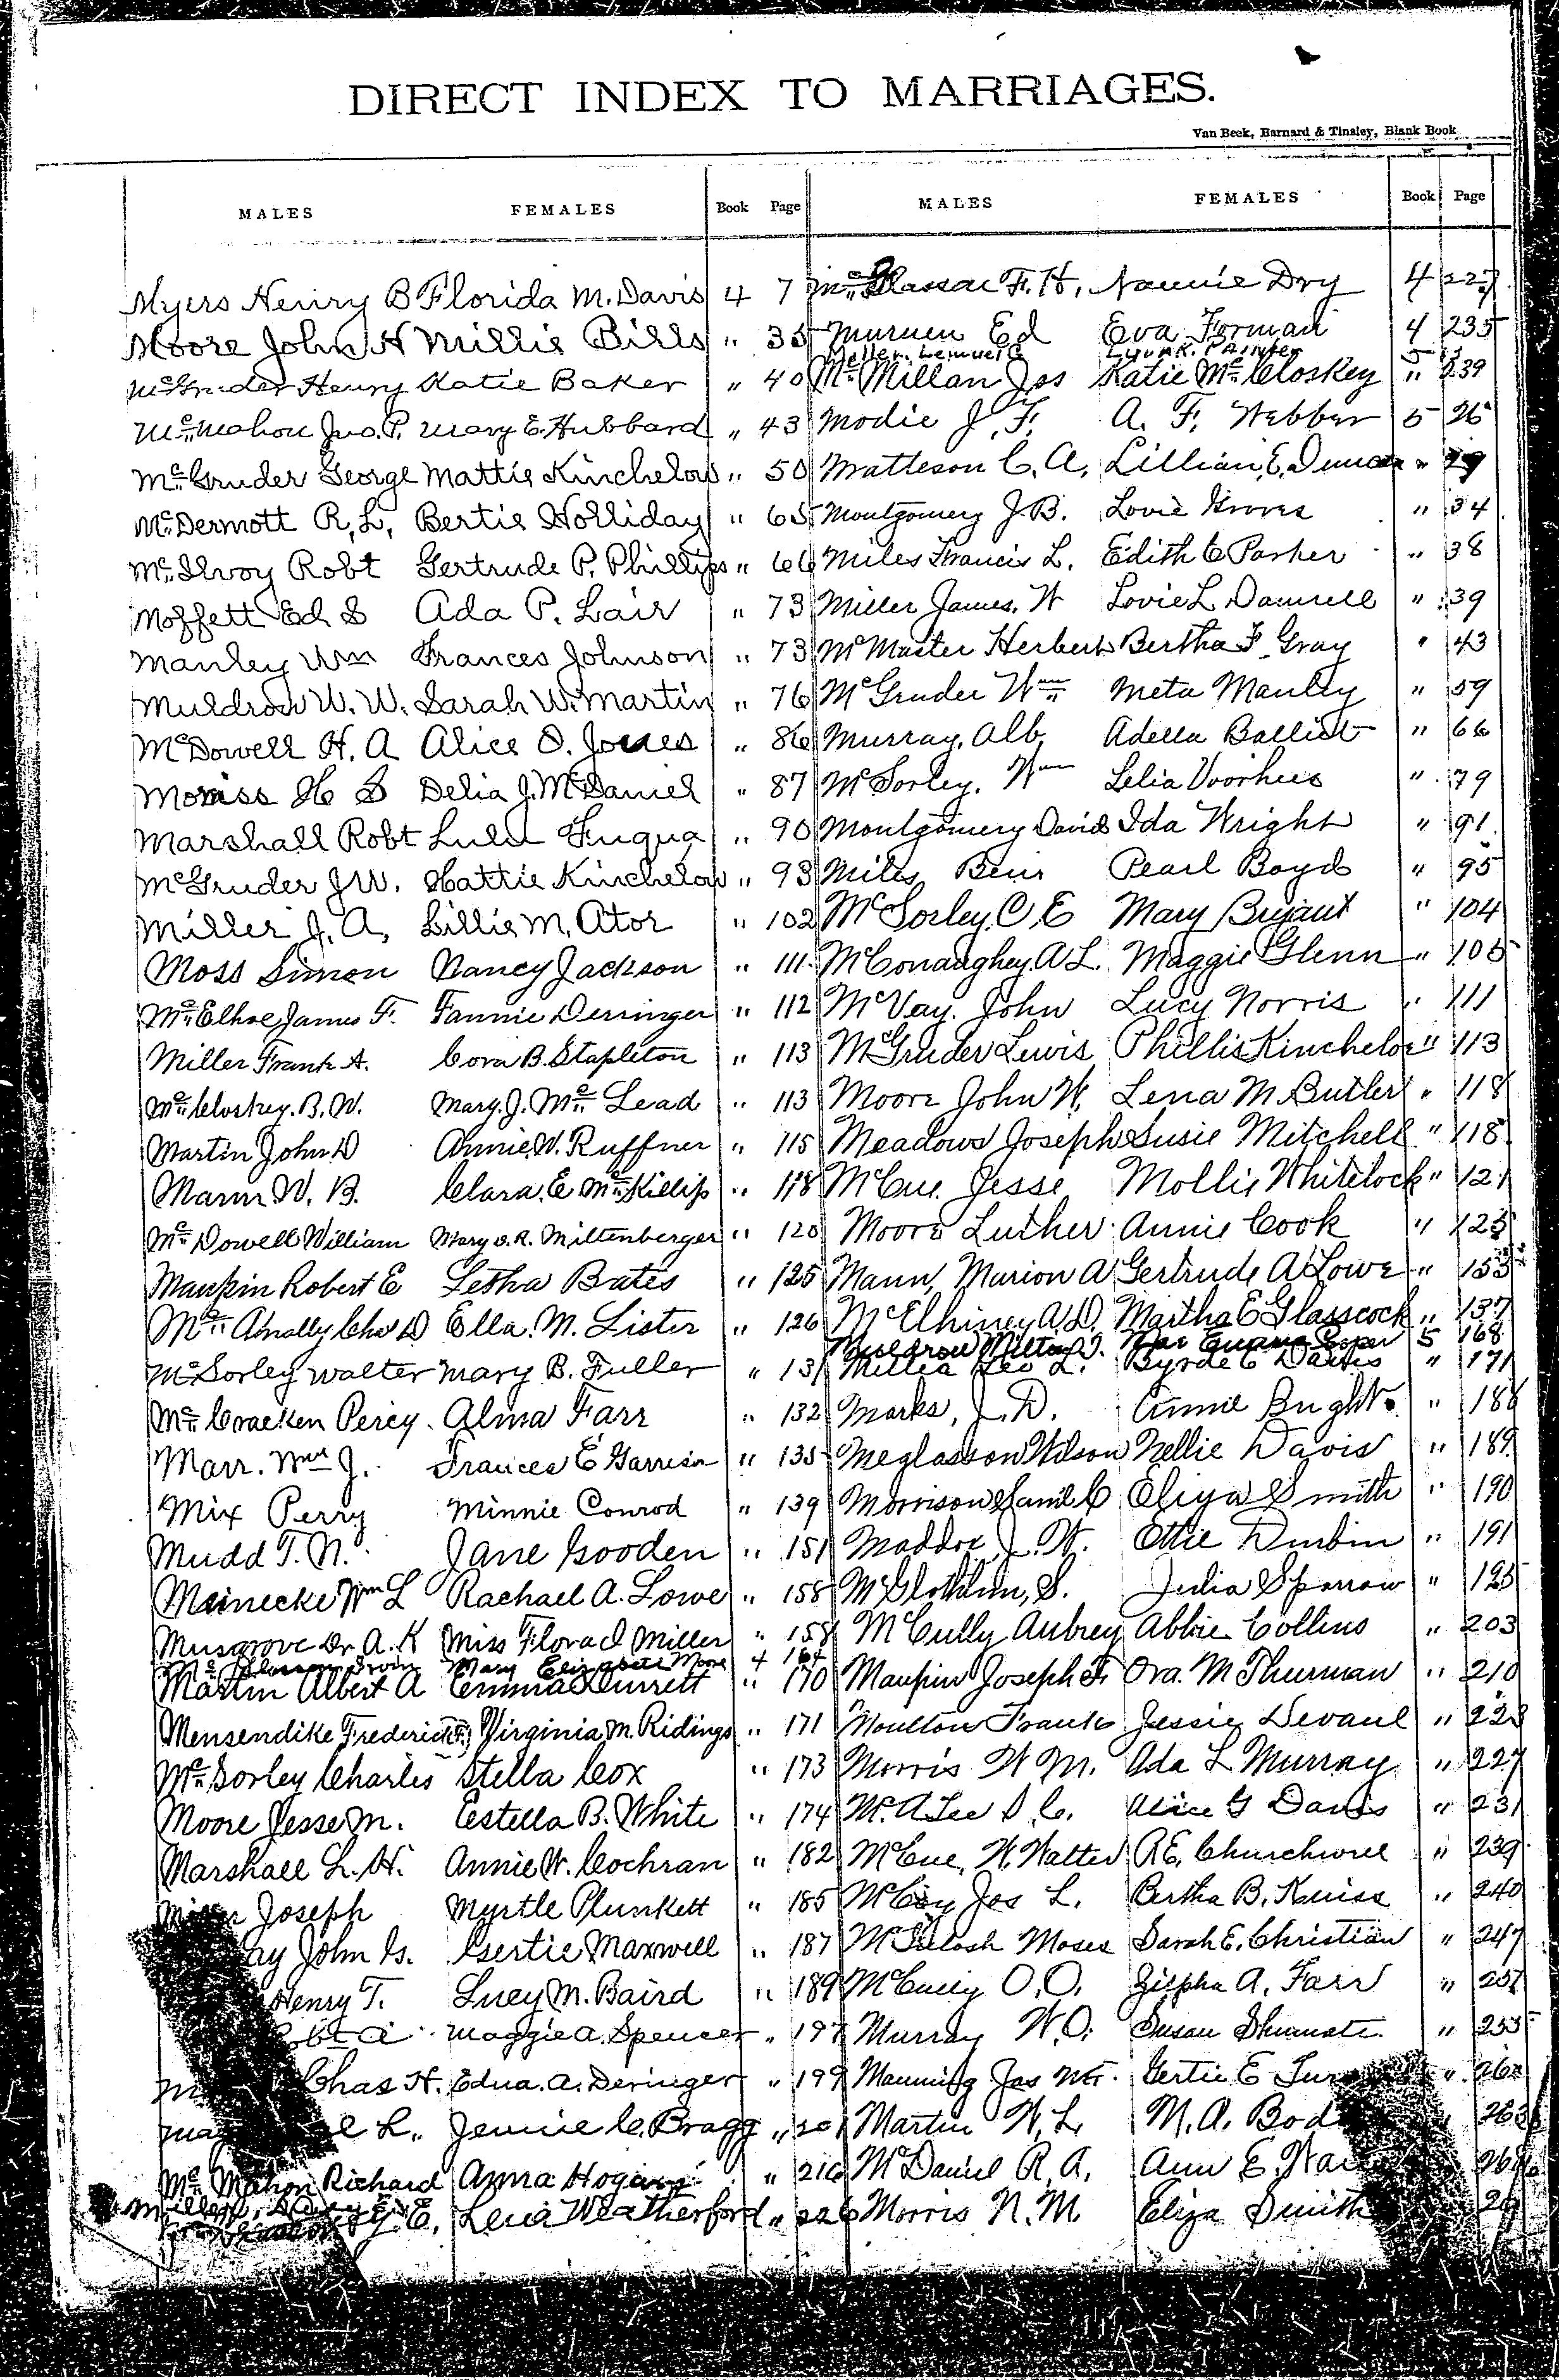 DIRECT INDEX TO MARRIAGES.
Van Beek, Barnard & Tinsley, Blank Book
MALES FEMALES Book Page
Myers Henry B Florida M. Davis 4 7
Moore John H Millie Bills " 35
McGruder Henry Katie Baker " 40
McMahon Jno. P. Mary E. Hubbard " 43
McGruder George Mattie Kinchelow " 50
McDermott R. L. Bertie Holliday " 65
McIlvoy Robt Gertrude P. Phillips " 66
Moffett Ed S Ada P. Lair " 73
Manley Wm Frances Johnson " 73
Muldrow W. W. Sarah W. Martin " 76
McDowell H. A Alice O. Jones " 86
Morriss H S Delia J. McDaniel " 87
Marshall Robt Lulu Fuqua " 90
McGruder J W. Hattie Kinchelow " 93
Miller J. A. Lillie M. Ator " 102
Moss Simon Nancy Jackson " 111
McElhoe James F. Fannie Derringer " 112
Miller Frank A. Cora B. Stapleton " 113
McCloskey. B. W. Mary. J. Mc Lead " 113
Martin John D Annie W. Ruffner " 115
Mann W. B. Clara. E McKillip " 118
McDowell William Mary O. R. Miltenberger " 120
Maupin Robert E Letha Bates " 125
McAnally Chas D Ella. M. Lister " 126
McSorley Walter Mary B. Fuller " 131
McCracken Percy. Alma Farr " 132
Marr. Wm J. Frances E Garrison " 135
Mix Perry Minnie Conrod " 139
Mudd T. N. Jane Gooden " 151
Meinecke Wm L Rachael A. Lowe " 158
Musgrove Dr A. K Miss Flora I Miller " 158
Irvin Mary Elizabeth Moore 4 164
Martin Albert A Emma Surrett " 170
Mensendike Frederick (F.) Virginia M. Ridings " 171
McSorley Charles Stella Cox " 173
Moore Jesse M. Estella B. White " 174
Marshall L. H. Annie W. Cochran " 182
Joseph Myrtle Plunkett " 185
John G. Gertie Maxwell " 187
Henry T. Lucy M. Baird " 189
Maggie A. Spencer " 197
Chas H. Edna. A. Deringer " 199
L. Jennie C. Bragg " 201
McMahon Richard Anna Hogan " 216
E. Lena Weatherford " 226
MALES FEMALES Book Page
F. H. Nannie Dry 4 227
Murnen Ed Eva Forman 4 235
Meller. Lemuel G Lyda R. Painter 5
McMillan Jos Katie McCloskey " 239
Modie J. F. A. F. Webber 5 26
Matteson C. A. Lillian E. Duncan " 29
Montgomery J. B. Lovie Groves " 34
Miles Francis L. Edith C Parker " 38
Miller James. W Lovie L Damrell " 39
McMaster Herbert Bertha F. Gray " 43
McGruder Wm Meta Manley " 59
Murray, Alb Adella Ballist " 66
McSorley. Wm Lelia Voorhees " 79
Montgomery David Ida Wright " 91
Miles Benj Pearl Boyd " 95
McSorley, C E Mary Bryant " 104
McConaughey. A L. Maggie Glenn " 105
McVay. John Lucy Norris " 111
McGruder Lewis Phillis Kincheloe " 113
Moore John W. Lena M. Butler " 118
Meadows Joseph Susie Mitchell " 118
McCue. Jesse Mollie Whitelock " 121
Moore Luther Annie Cook " 125
Mann, Marion A Gertrude A Lowe " 153
McElhiney A. D. Martha E Glasscock " 137
Muldrow Milton J. 5 168
Leo L. Byrde C Davis " 171
Marks, J. D. Annie Bright. " 188
Meglasson Wilson Nellie Davis " 189
Morrison Saml C Eliza Smith " 190
Maddox, J. W. Ettie Durbin " 191
McGlothlin, S. Julia Sparrow " 195
McCully Aubrey Abbie Collins " 203
Maupin Joseph F. Ora. M Thurman " 210
Moulton Frank Jessie Devaul " 223
Morris W M. Ada L Murray " 227
McAtee S. C. Alice G Davis " 231
McCue, W. Walter R E. Churchwell " 239
McCoy Jos L. Bertha B. Kniss " 240
McIntosh Moses Sarah E. Christian " 247
McCully O. O. Zilpha A. Farr " 251
Murray W. O. Susan Shumate. " 255
Manning Jas Mc. Gertie E " 260
Martin W. L. M. A. 262
McDaniel R. A. Ann E
Morris N. M. Eliza Smith